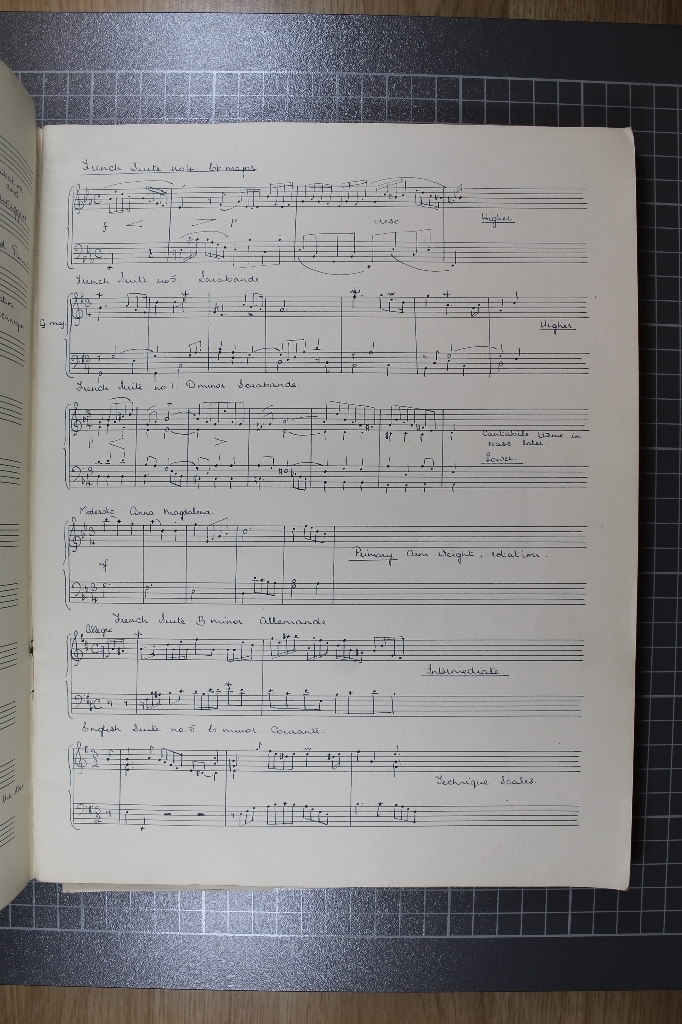 French Suite no4. Eb major
f
p
cresc.
Higher
French Suite no5. Sarabande
G maj.
Higher
French Suite no 1. D minor Sarabande.
p
Cantabile tune in
bass later.
Lower.
Moderato Anna Magdalena.
mf
Primary Arm weight, rotation.
French Suite B minor Allemande
Allegro
Intermediate
English Suite no.5 E minor. Courante.
Technique Scales.